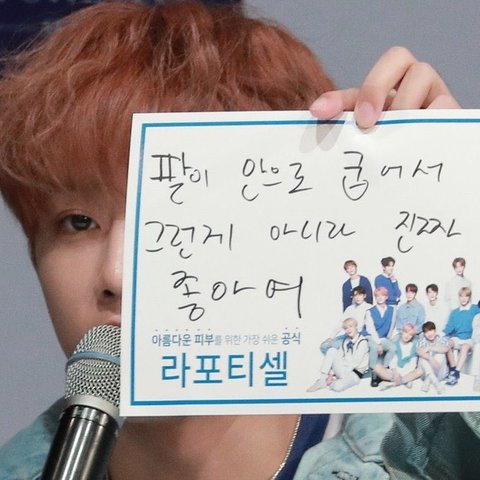 팔이 안으로 굽어서
그런게 아니라 진짜
좋아여
아름다운 피부를 위한 가장 쉬운 공식
라포티셀